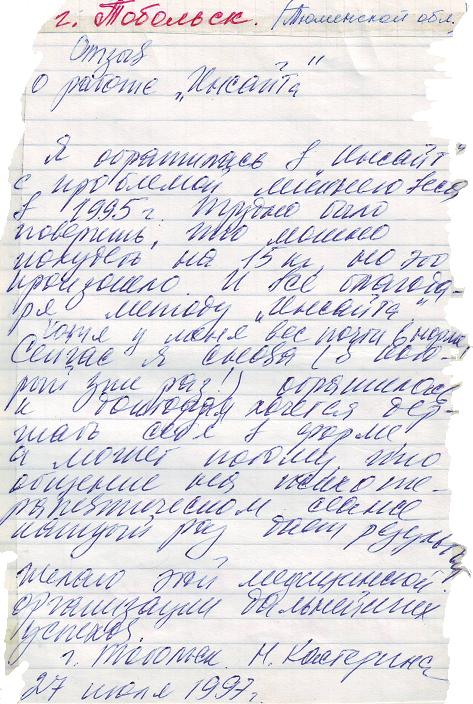 г. Тобольск. (Тюменской обл.
Отзыв
о работе „Инсайта"
Я обратилась в „Инсайт"
с проблемой лишнего веса
в 1995 г. Трудно было
поверить, что можно
похудеть на 15 кг, но это
произошло. И всё благода-
ря методу „Инсайта"
Хотя у меня вес почти в норме,
Сейчас я снова (в кото-
рый уже раз!) обратилась
к докторам, хочется дер-
жать себя в форме,
а может потому, что
общение на психоте-
рапевтическом сеансе
каждый раз даёт
Желаю этой медицинской
организации дальнейших
успехов.
г. Тобольск. Н. Кастерина
27 июля 1997г.